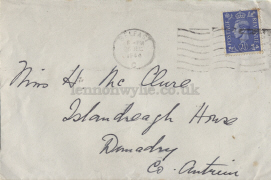 Miss H. Mc Clure.
Islandreagh House
Dunadry
Co. Antrim
lennonwylie.co.uk